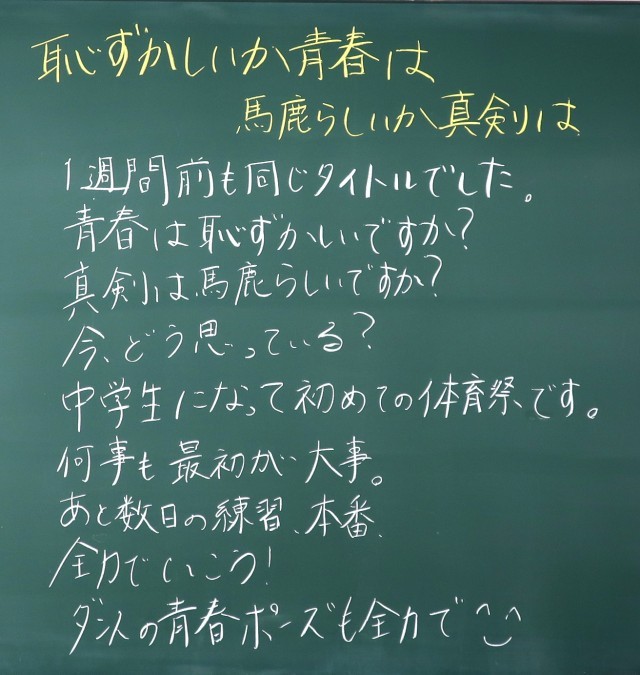 恥ずかしいか青春は
馬鹿らしいか真剣は
1週間前も同じタイトルでした。
青春は恥ずかしいですか?
真剣は馬鹿らしいですか?
今、どう思っている?
中学生になって初めての体育祭です。
何事も最初が大事。
あと数日の練習、本番、
全力でいこう!
ダンスの青春ポーズも全力で^_^